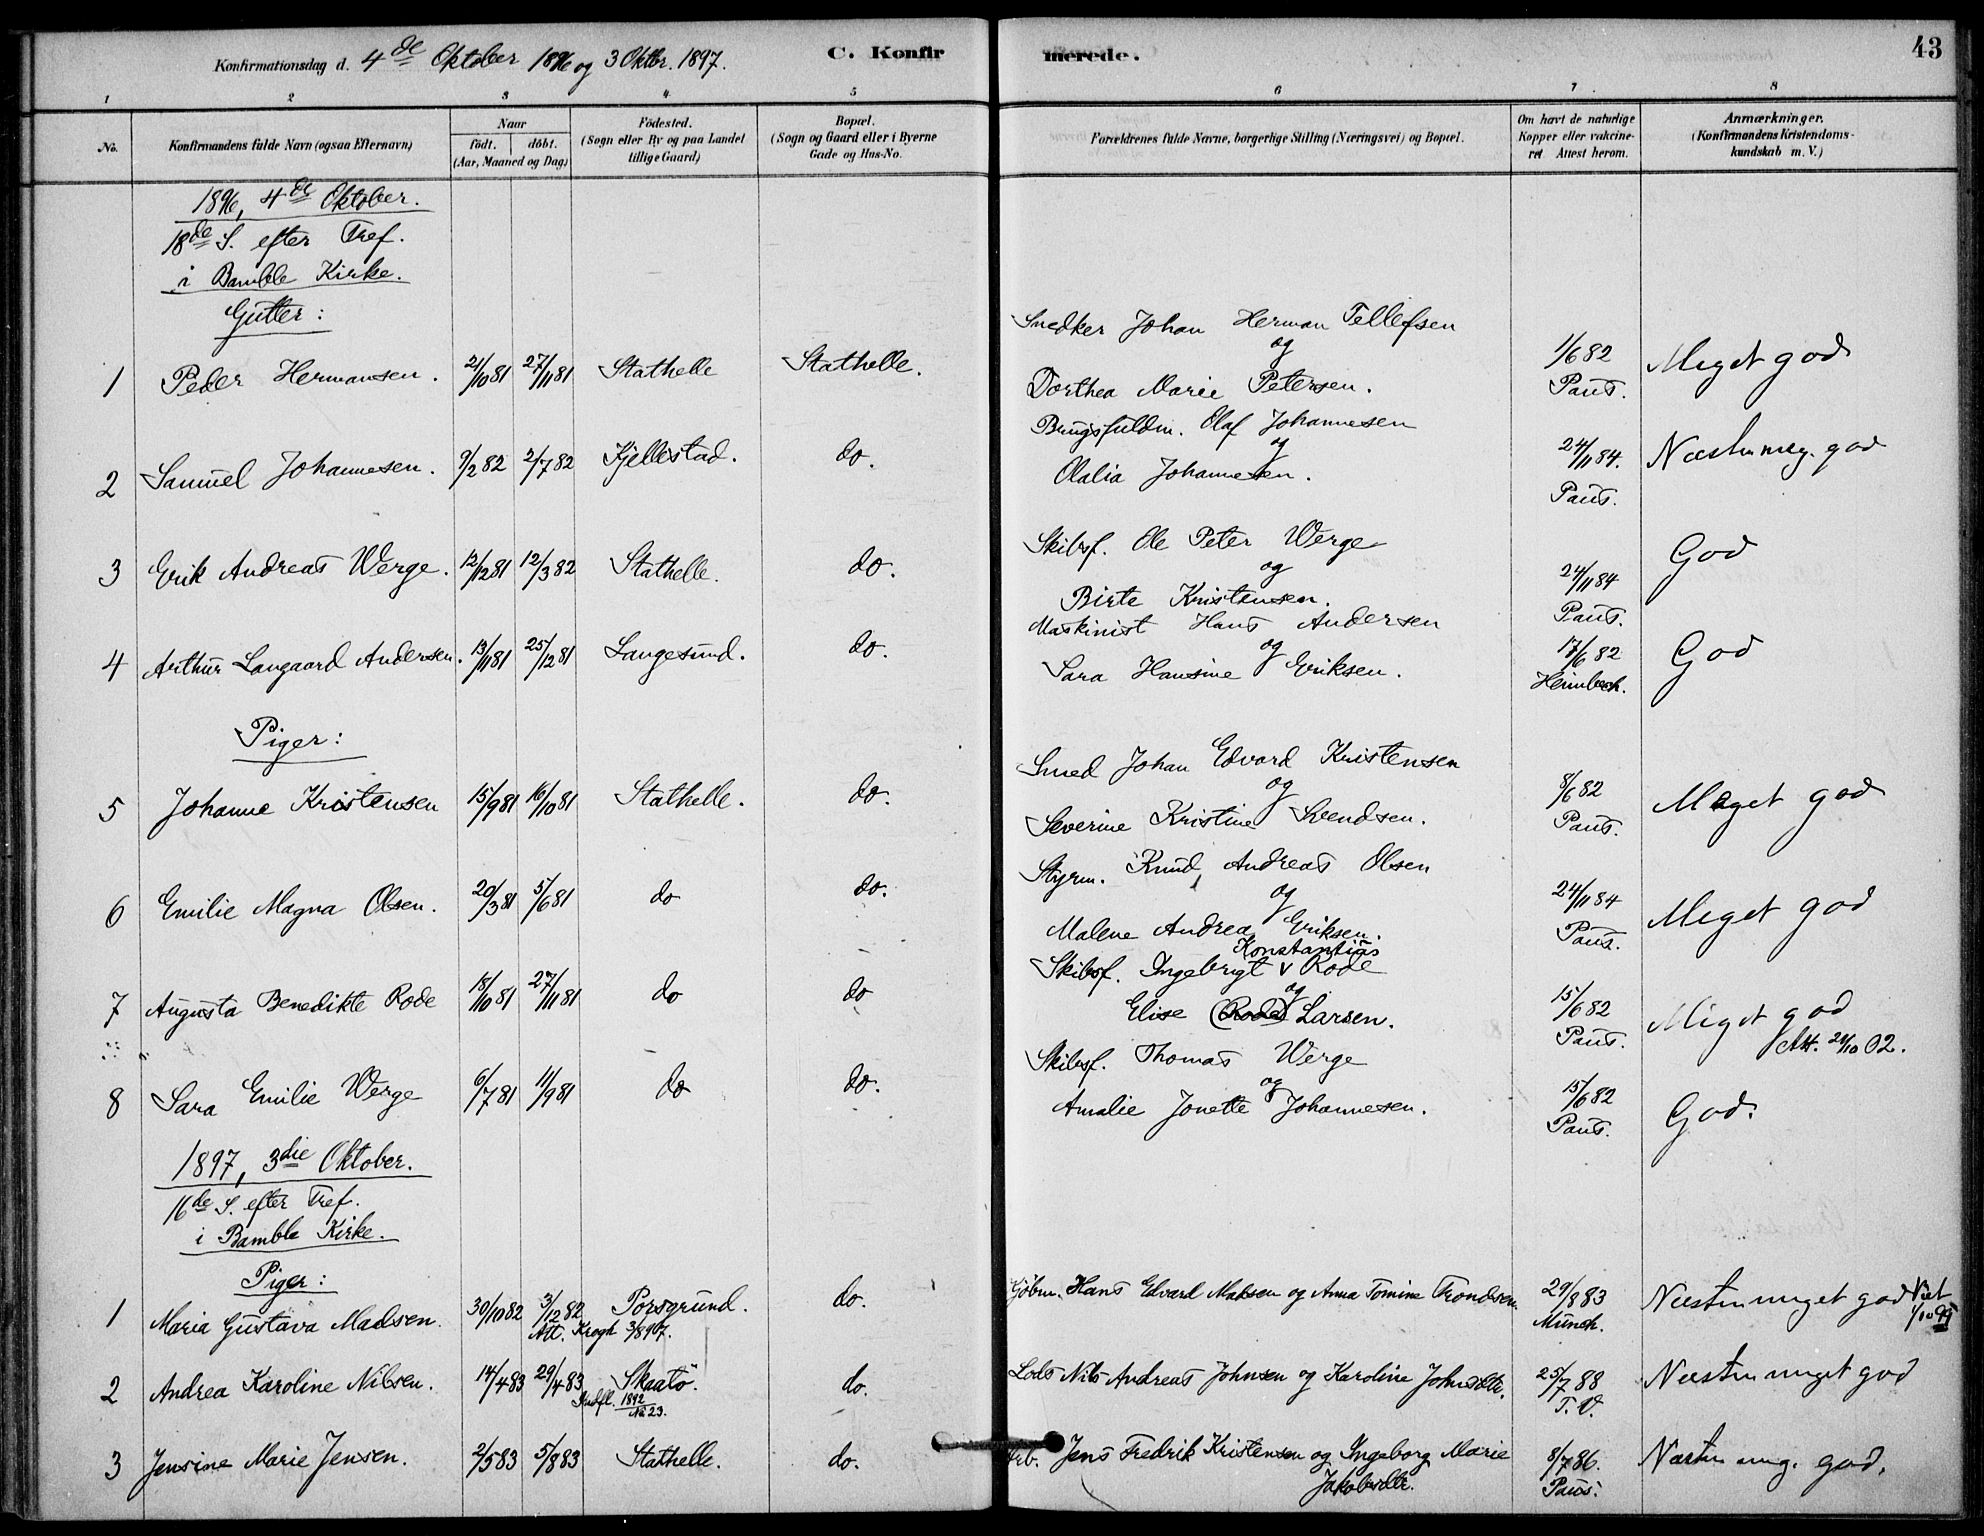 Konfirmationsdag d. 4de Oktober 1896 og 3 Oktbr. 1897. C. Konfir merede. 43
1 2 3 4 5 6 7 8
No. Konfirmandens fulde Navn (ogsaa Efternavn) Naar født. døbt. (Aar, Maaned og Dag) Fødested. (Sogn eller By og paa Landet tillige Gaard) Bopæl. (Sogn og Gaard eller i Byerne Gade og Hus-No. Forældrenes fulde Navne, borgerlige Stilling (Næringsvei) og Bopæl. Om havt de naturlige Kopper eller vakcineret Attest herom. Anmærkninger. (Konfirmandens Kristendomskundskab m. V.)
1896, 4de Oktober.
18de S. efter Tref.
i Bamble Kirke.
Gutter:
Snedker Johan Herman Tellefsen
og
1 Peder Hermansen. 21/10 81 27/11 81 Stathelle Stathelle. Dorthea Marie Petersen. 1/6 82 Paus. Meget god
Brugsfuldm. Olaf Johannesen
og
2 Samuel Johannesen. 9/2 82 2/7 82 Kjellestad. do. Olalia Johannesen. 24/11 84. Paus. Næsten meg. god
Skibsf. Ole Peter Werge
og
3 Erik Andreas Werge. 12/12 81 12/3 82 Stathelle. do. Birte Kristensen. 24/11 84 Paus. God
Maskinist Hans Andersen
og
4 Arthur Langaard Andersen. 13/11 81 25/12 81 Langesund. do. Sara Hansine Eriksen. 17/6 82 Heimbeck. God
Piger:
Smed Johan Edvard Kristensen
og
5 Johanne Kristensen 15/9 81 16/10 81 Stathelle. do. Severine Kristine Svendsen. 8/6 82 Paus. Meget god
Styrm. Knud Andreas Olsen
og
6 Emilie Magna Olsen. 20/3 81 5/6 81 do do. Malene Andrea Eriksen. 24/11 84 Paus. Meget god
Konstantius
Skibsf. Ingebrigt v Rode
og
7 Augusta Benedikte Rode 18/10 81 27/11 81 do do Elise (Rode) Larsen. 15/6 82 Paus. Meget god
Att. 24/10 02.
Skibsf. Thomas Werge
og
8 Sara Emilie Werge 6/7 81 11/9 81 do do. Amalie Jonette Johannesen. 15/6 82 Paus. God.
1897, 3die Oktober.
16de S. efter Tref.
i Bamble Kirke.
Piger:
1 Maria Gustava Madsen. 30/10 82 3/12 82 Att. Krogh 3/8 97. Porsgrund. do. Hans Edvard Madsen og Anna Tomine Trondsen. 29/8 83 Münch. Næsten meget god
2 Andrea Karoline Nilsen. 14/4 83 29/4 83 Skaatö. Indfl. 1892 No 23. do. Lods Nils Andreas Johnsen og Karoline Johnsdtr. 25/7 88 T. V. Næsten meget god
3 Jensine Marie Jensen. 2/5 83 5/8 83 Stathelle. do. Arb. Jens Fredrik Kristensen og Ingeborg Marie
Jakobsdtr. 8/7 86. Paus. Næsten meg. god.